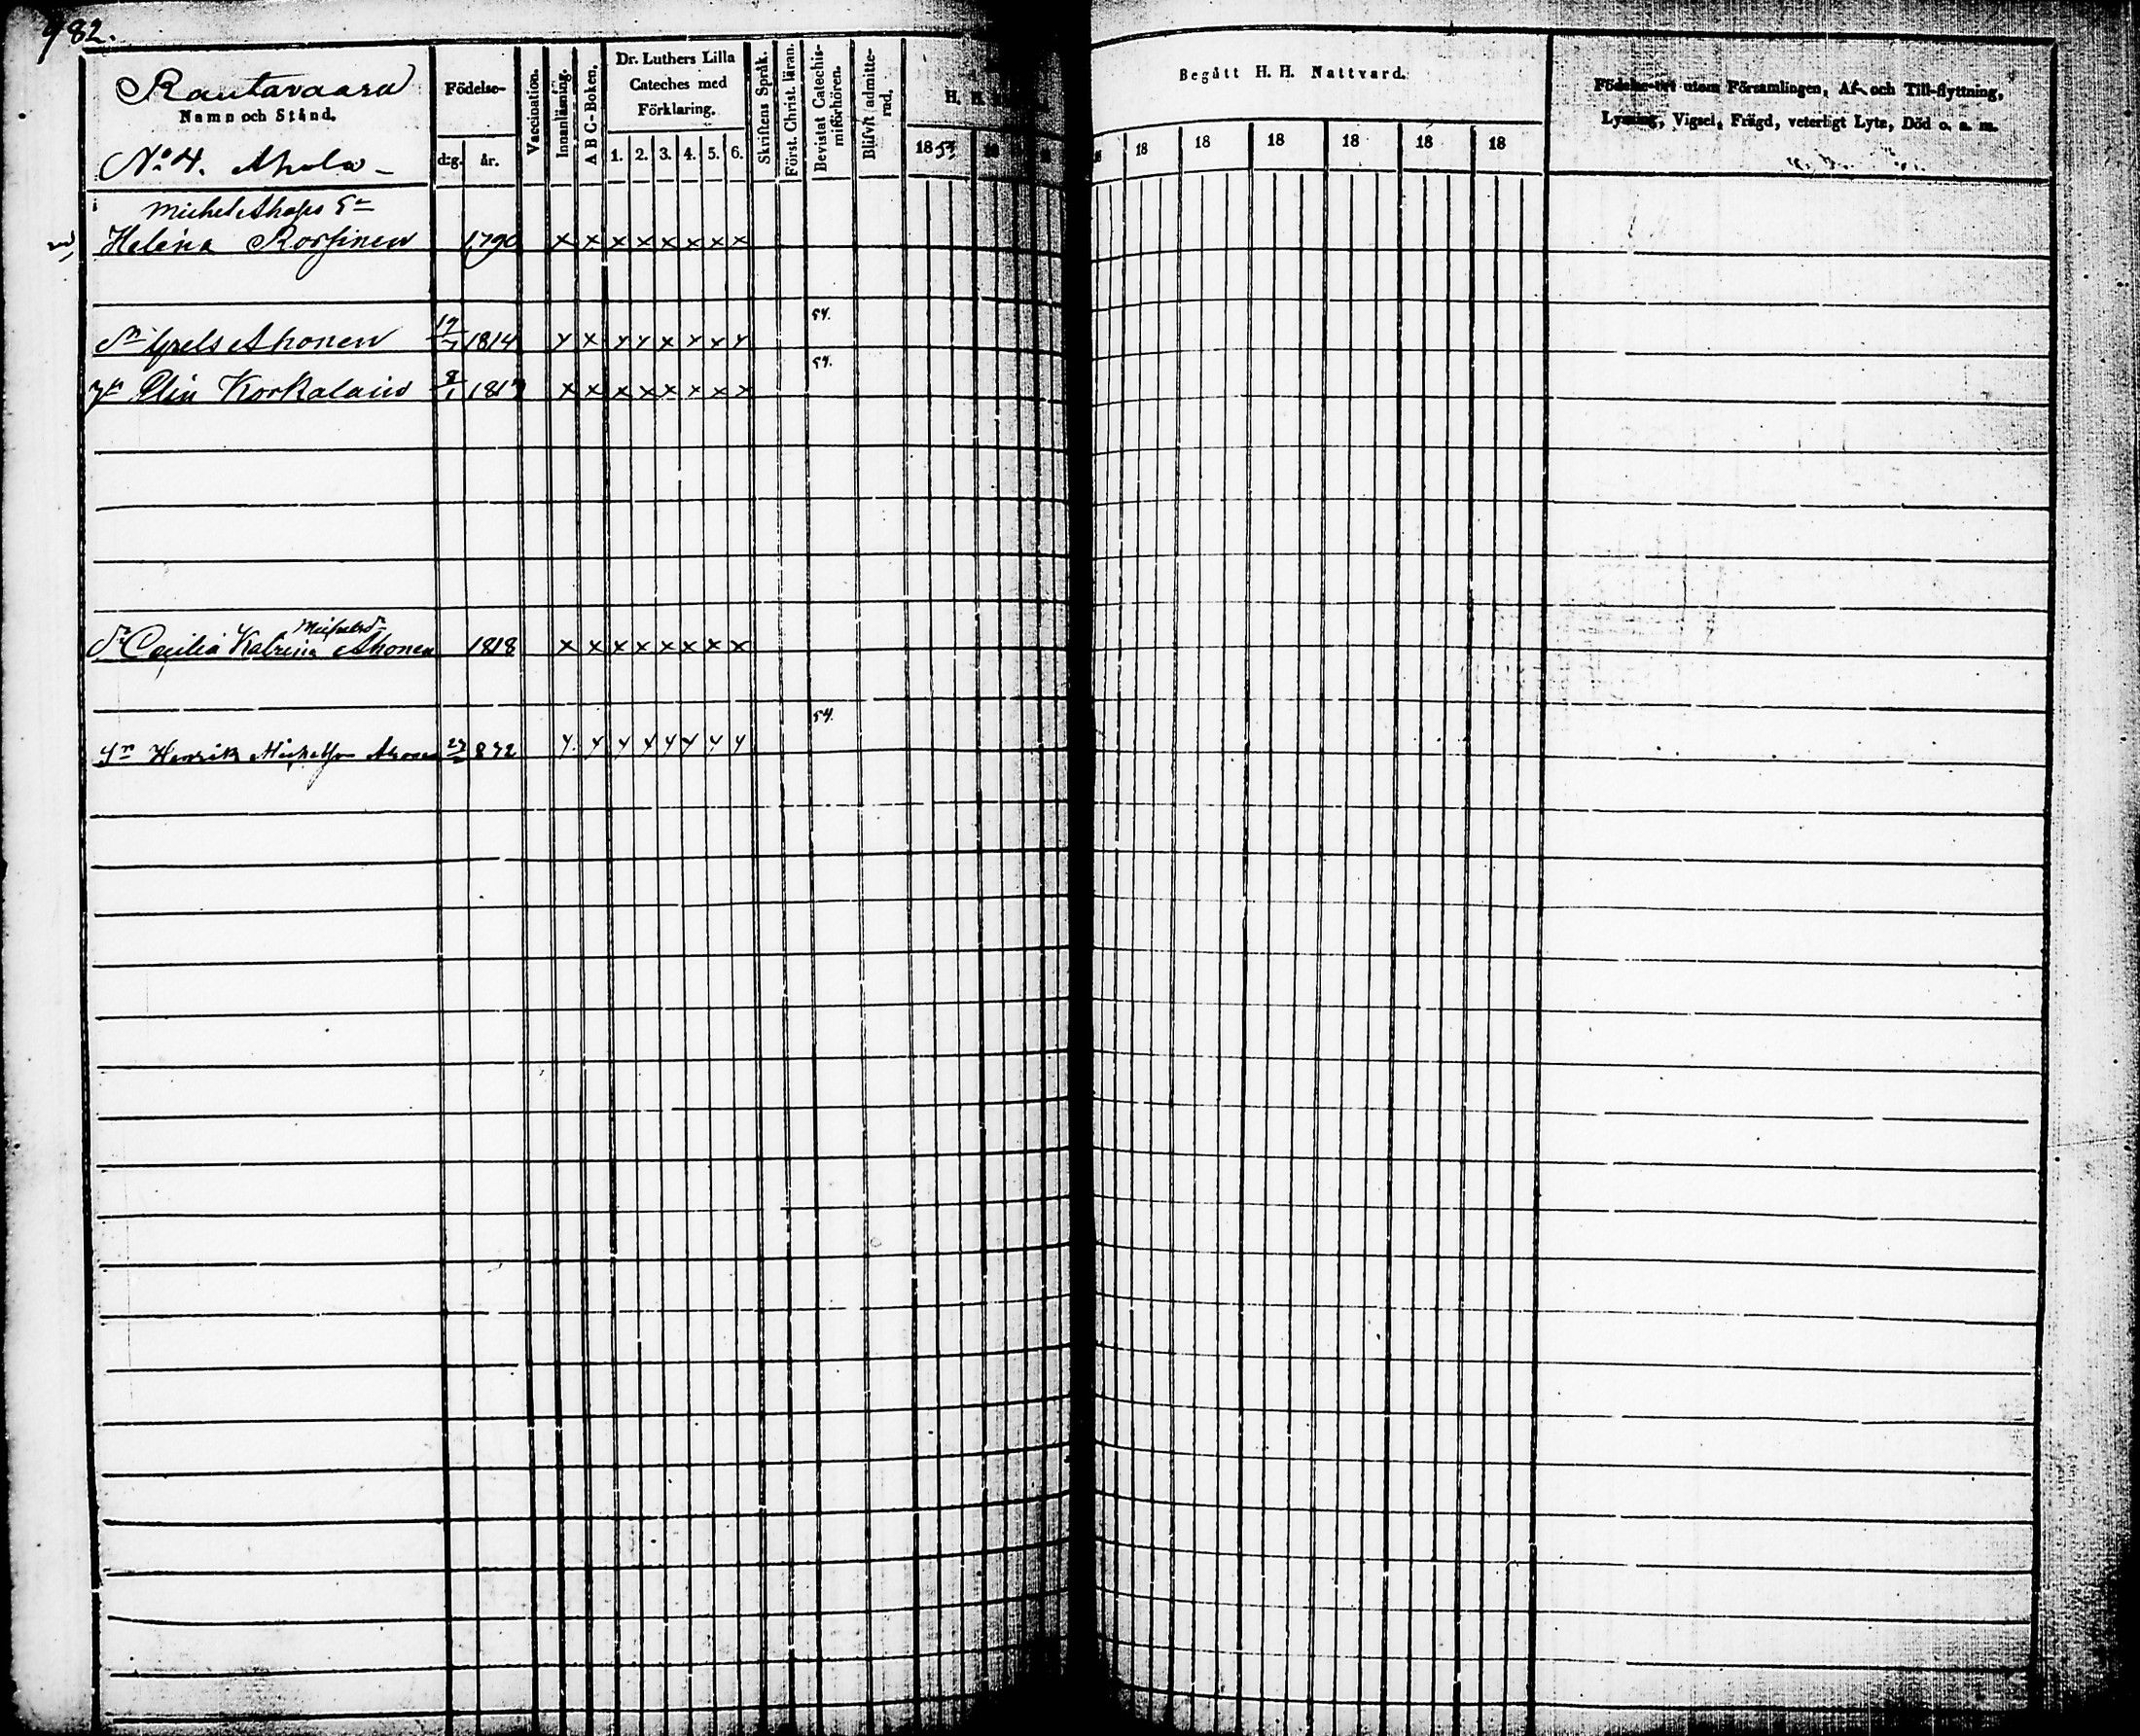 982.
Rautavaara
Namn och Stånd.
No 4. Ahola
Födelse-
dag. år.
Vaccination.
Innanläsning.
A B C-Boken.
Dr. Luthers Lilla
Cateches med
Förklaring.
1. 2. 3. 4. 5. 6.
Skriftens Språk.
Först. Christ. läran.
Bevistat Catechis-
miförhören.
Blifvit admitte-
rad.
H. H.
18
Begått H. H. Nattvard.
18 18 18 18 18 18
Födelse-ort utom Församlingen, Af- och Till-flyttning,
Lysning, Vigsel, Frägd, veterligt Lyte, Död o. a. m.
Michel
Helena 1790 x x x x x x x x
54.
Ahonen 17 1814 x x x x x x x x
54.
Elin Korkalain 8/1 181 x x x x x x x x
Cecilia Katrina Ahonen 1818 x x x x x x x x
54.
Henrik Michelsson Ahonen 27 x x x x x x x x